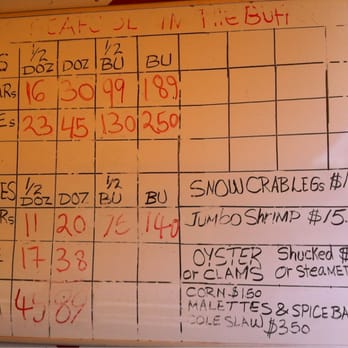 SEAFOOD IN THE BUFF
Q 1/2 DOZ DOZ 1/2 BU BU
Rs 16 30 99 189
Es 23 45 130 250
ES 1/2 DOZ DOZ 1/2 BU BU SNOW CRAB LEGS $1
Rs 11 20 75 140 Jumbo Shrimp $15.
E 17 38 OYSTER Shucked $
or CLAMS or Steamer
45 89 CORN $1.50
MALETTES & SPICE BA
COLE SLAW $3.50